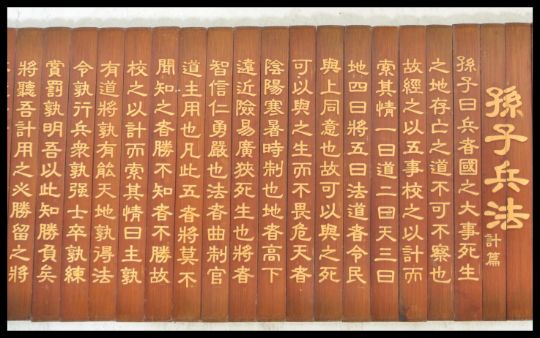 孫子兵法
計篇
孫子曰兵者國之大事死生
之地存亡之道不可不察也
故經之以五事校之以計而
索其情一曰道二曰天三曰
地四曰將五曰法道者令民
與上同意也故可以與之死
可以與之生而不畏危天者
陰陽寒暑時制也地者高下
遠近險易廣狹死生也將者
智信仁勇嚴也法者曲制官
道主用也凡此五者將莫不
聞知之者勝不知者不勝故
校之以計而索其情曰主孰
有道將孰有能天地孰得法
令孰行兵衆孰强士卒孰練
賞罰孰明吾以此知勝負矣
將聽吾計用之必勝留之將